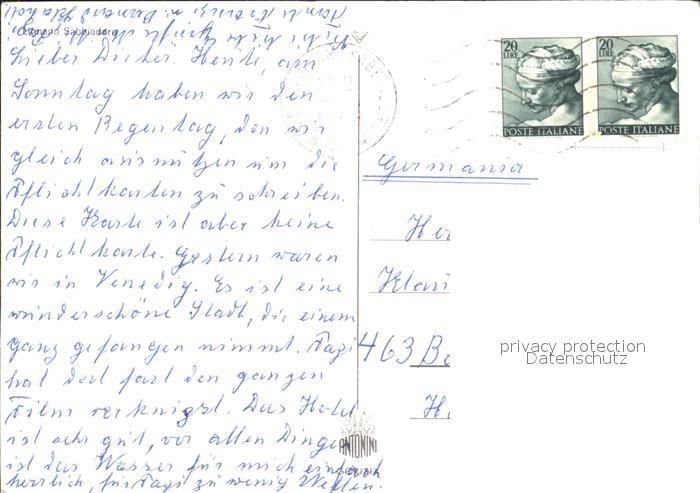 Lignano Sabbiadoro
Lieber Dieter. Heute, am
Sonntag haben wir den
ersten Regentag, den wir
gleich ausnützen um die
Pflichtkarten zu schreiben.
Diese Karte ist aber keine
Pflichtkarte. Gestern waren
wir in Venedig. Es ist eine
wunderschöne Stadt, die einem
ganz gefangen nimmt.
hat dort fast den ganzen
Film verknipst. Das Hotel
ist sehr gut, vor allen Dingen
ist das Wasser für mich einfach
herrlich, für zu wenig Wellen.
20 LIRE
POSTE ITALIANE
20 LIRE
POSTE ITALIANE
Germania
463 B
ANTONINI
privacy protection
Datenschutz